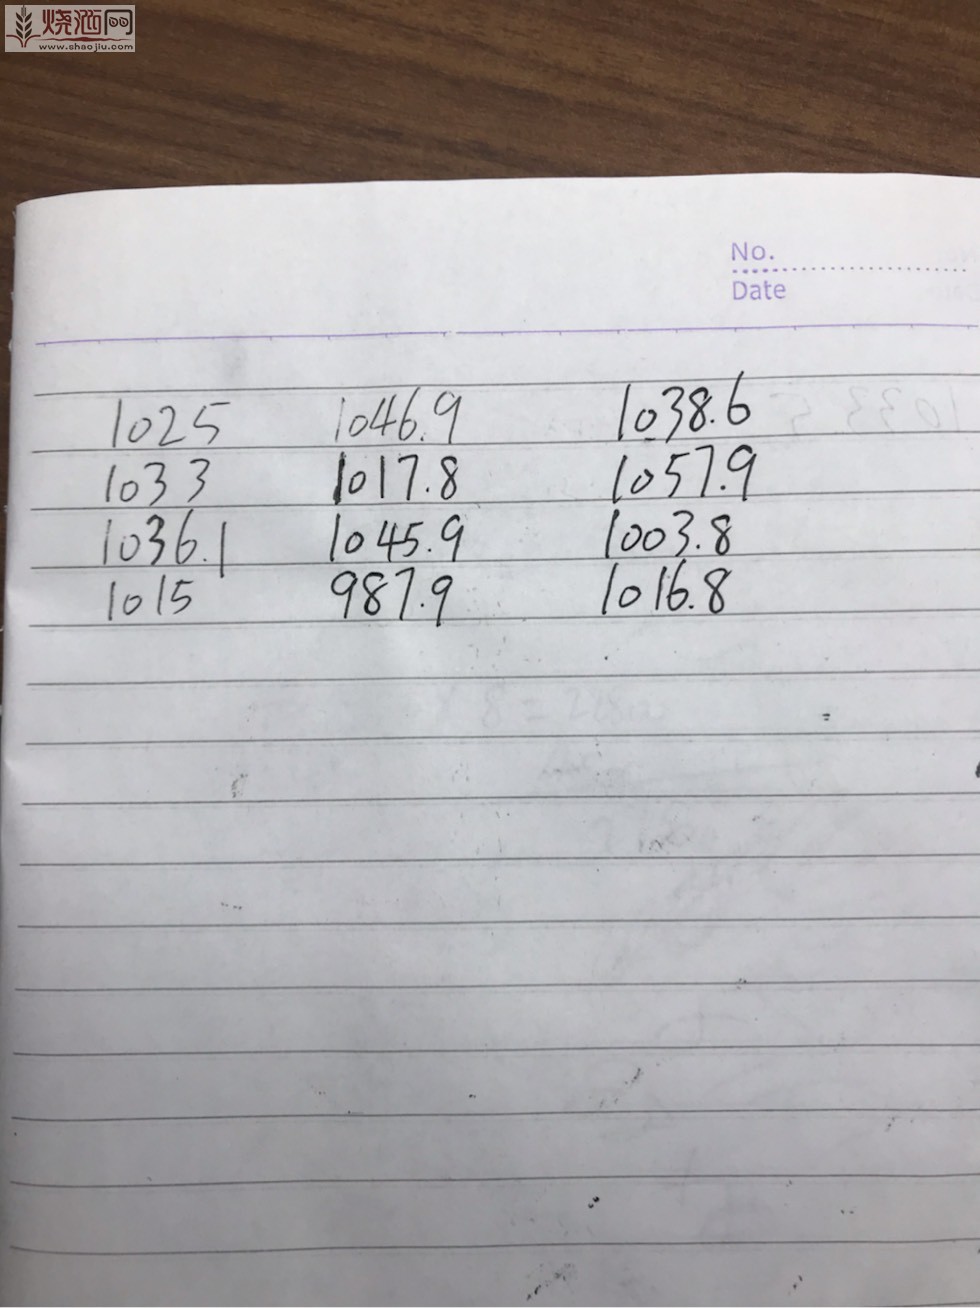 烧酒网
www.shaojiu.com
No.
Date
1025 1046.9 1038.6
1033 1017.8 1057.9
1036.1 1045.9 1003.8
1015 987.9 1016.8